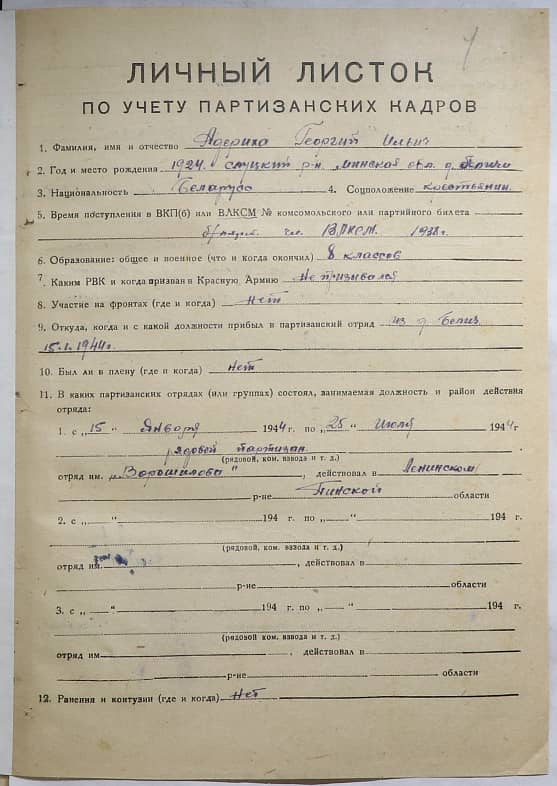 ЛИЧНЫЙ ЛИСТОК
ПО УЧЕТУ ПАРТИЗАНСКИХ КАДРОВ
1. Фамилия, имя и отчество Адериха Георгий Ильич
2. Год и место рождения 1924. Слуцкий р-н. Минской обл. д.
3. Национальность Беларус 4. Соцположение
5. Время поступления в ВКП(б) или ВЛКСМ № комсомольского или партийного билета
чл. ВЛКСМ. 1938г.
6. Образование: общее и военное (что и когда окончил) 8 классов
7. Каким РВК и когда призван в Красную Армию Не призывался
8. Участие на фронтах (где и когда) Нет
9. Откуда, когда и с какой должности прибыл в партизанский отряд из д.
15.1.1944г.
10. Был ли в плену (где и когда) Нет
11. В каких партизанских отрядах (или группах) состоял, занимаемая должность и район действия
отряда:
1. с „15 “ Января 1944 г. по „25 “ Июля 1944 г
рядовой партизан
(рядовой, ком. взвода и т. д.)
отряд им. „Ворошилова“, действовал в Ленинском
р-не Пинской области
2. с „ “ 194 г. по „ “ 194 г.
(рядовой, ком. взвода и т. д.)
отряд им. , действовал в
р-не области
3. с „ “ 194 г. по „ “ 194 г.
(рядовой, ком. взвода и т. д.)
отряд им , действовал в
р-не области
12. Ранения и контузии (где и когда) Нет